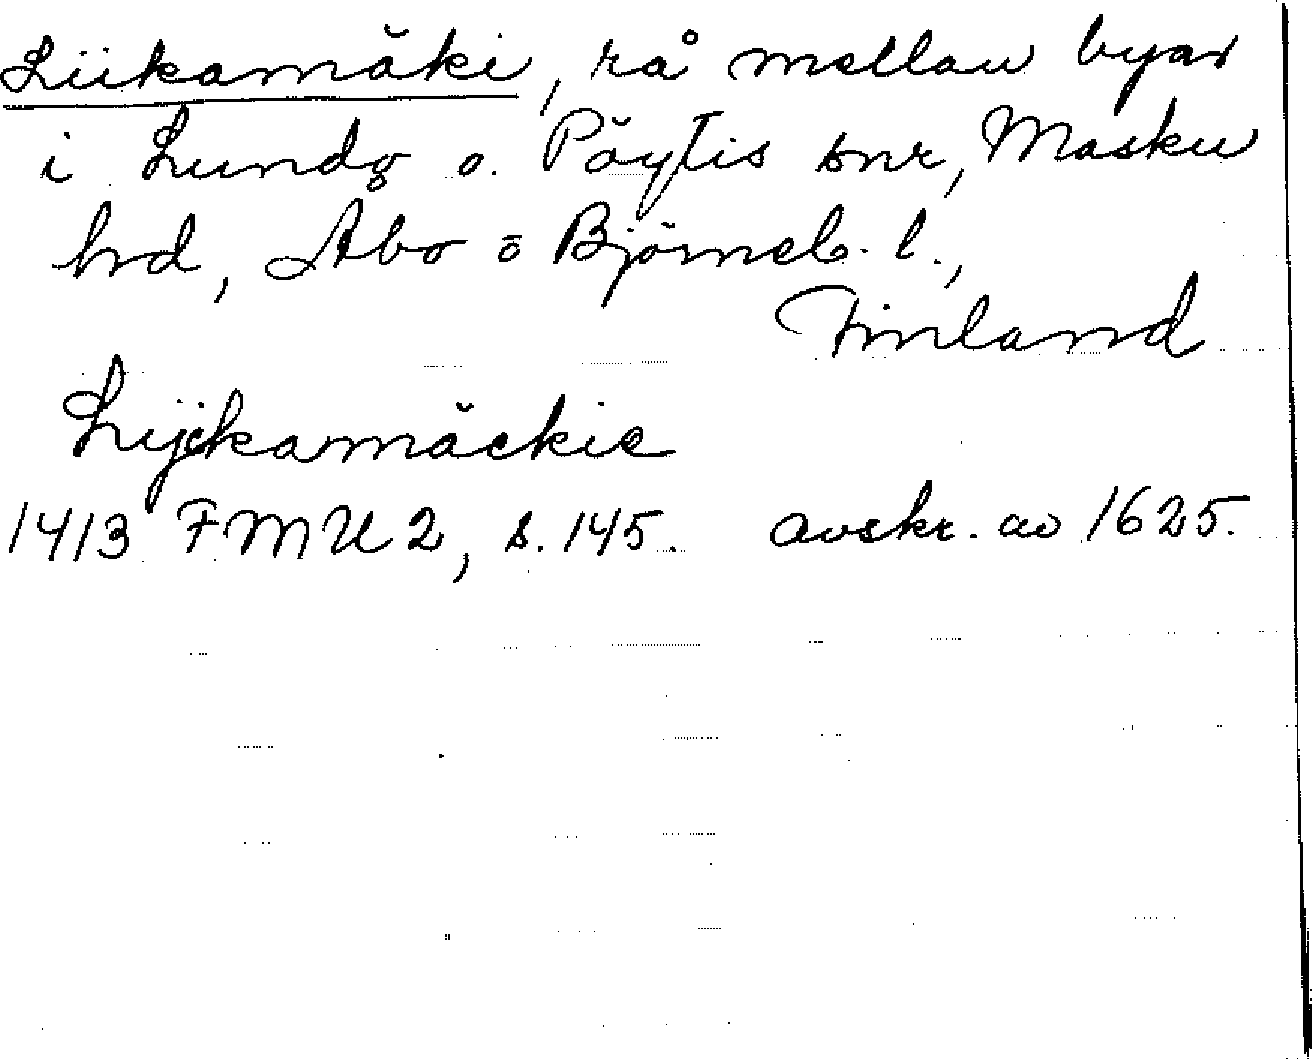 Liikamäki, rå mellan byar
i Lundo o. Pöytis snr, Masku
hrd, Åbo o Björneb. l.,
Finland
Lijckamäckie
1413 FMU 2, s. 145. avskr. av 1625.